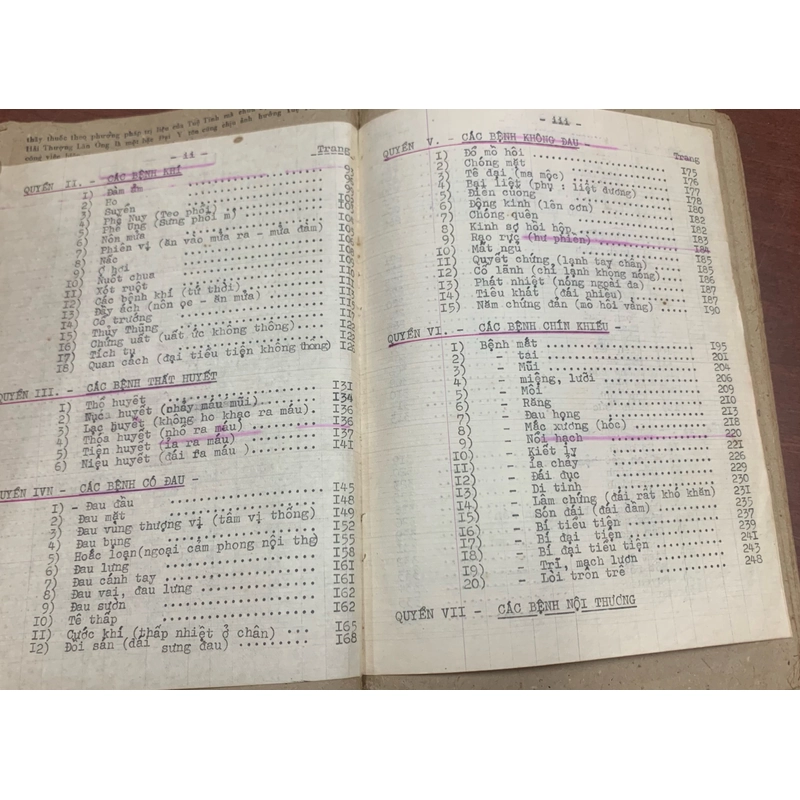 thầy thuốc theo phương pháp trị liệu của Tuệ Tĩnh mà
Hải Thượng Lãn Ông là một bậc Đại Y tôn cũng chịu ảnh hưởng
- ii -
Trang
QUYỂN II. - CÁC BỆNH KHÍ
1) Đàm ẩm
2) Ho
3) Suyễn
4) Phế Nuy (Teo phổi)
5) Phế Ung (Sưng phổi)
6) Nôn mửa
7) Phiên vị (ăn vào mửa ra - mửa đàm)
8) Nấc
9) Ợ hơi
10) Nuốt chua
11) Xót ruột
12) Các bệnh khí (tứ thời)
13) Đầy ách (nôn ọe - ăn mửa)
14) Cổ trướng
15) Thủy Thũng
16) Chứng uất (uất ức không thông)
17) Tích tụ
18) Quan cách (đại tiểu tiện không thông)
QUYỂN III. - CÁC BỆNH THẤT HUYẾT
1) Thổ huyết 131
2) Nục huyết (chảy máu mũi) 134
3) Lạc huyết (không ho khạc ra máu). 136
4) Thóa huyết (nhổ ra máu) 136
5) Tiện huyết (ỉa ra máu) 137
6) Niệu huyết (đái ra máu ). 141
QUYỂN IVN - CÁC BỆNH CÓ ĐAU -
1) - Đau đầu 145
2) Đau mặt 148
3) Đau vùng thượng vị (tâm vị thống) 149
4) Đau bụng 152
5) Hoắc loạn(ngoại cảm phong nội thg) 155
6) Đau lưng 158
7) Đau cánh tay 161
8) Đau vai, đau lưng 161
9) Đau sườn 162
10) Tê thấp 162
11) Cước khí (thấp nhiệt ở chân) ... 165
12) Đồi sán (dái sưng đau) 168
- iii -
QUYỂN V. - CÁC BỆNH KHÔNG ĐAU -
Trang
1) Đổ mồ hôi 175
2) Chóng mặt 176
3) Tê dại (ma mộc) 177
4) Bại liệt (phụ : liệt dương) 178
5) Điên cuồng 180
6) Động kinh (lên cơn) 182
7) Chóng quên 182
8) Kinh sợ hồi hộp 183
9) Rạo rực (hư phiền) 184
10) Mất ngủ 185
11) Quyết chứng (lạnh tay chân) 185
12) Cố lãnh (chỉ lạnh không nóng). 186
13) Phát nhiệt (nóng ngoài da) 187
14) Tiêu khát (đái nhiều) 187
15) Năm chứng đản (mồ hôi vàng) 190
QUYỂN VI. - CÁC BỆNH CHÍN KHIẾU -
1) Bệnh mắt 195
2) - tai 201
3) - Mũi 204
4) - miệng, lưỡi 206
5) - Môi 209
6) - Răng 210
7) - Đau họng 213
8) - Mắc xương (hóc) 218
9) - Nổi hạch 220
10) - Kiết lỵ 221
11) - Ỉa chảy 226
12) - Đái đục 229
13) - Di tinh 230
14) - Lâm chứng (đái rất khó khăn) 231
15) - Són đái (đái dầm) 235
16) - Bí tiểu tiện 237
17) - Bí đại tiện 239
18) - Bí đại tiểu tiện 241
19) - Trĩ, mạch lươn 243
20) - Lòi trôn trê 248
QUYỂN VII - CÁC BỆNH NỘI THƯƠNG